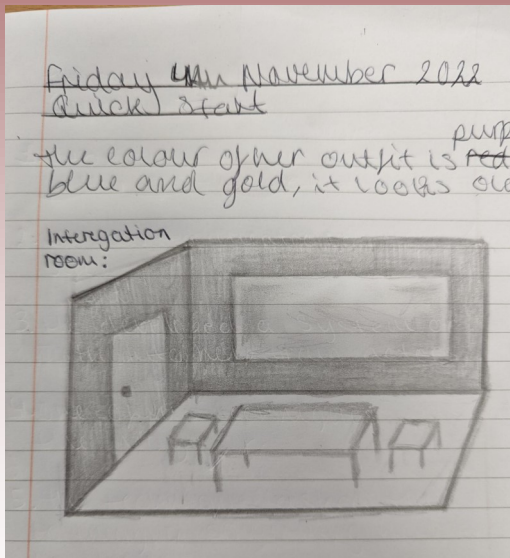 Friday 4th November 2022
Quick start
purp
the colour of her outfit is red
blue and gold, it looks old
Interegation
room: